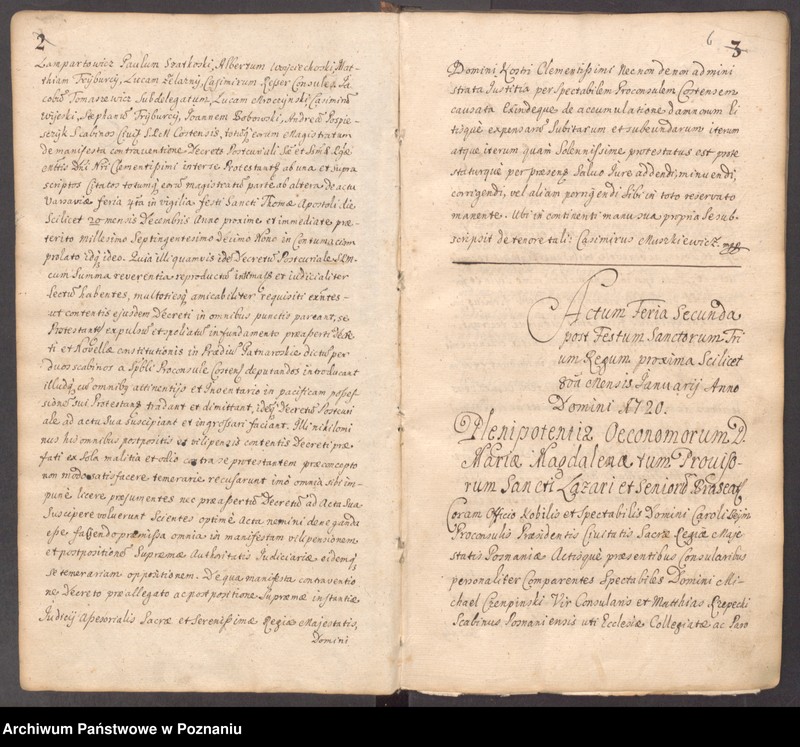 2
Lampartowicz Paulum Szatkoski, Albertum Woyciechoski, Mat-
thiam Fryburcy, Lucam Zelazny, Casimirum Resser Consules, Ja-
cobū Tomaszewicz Subdelegatum, Lucam Mroczynski, Casimirū
Wijoski, Stephanū Fryburcy, Joannem Bobowski, Andreā Pospie-
szyk Scabinos Cittīs S.R.M Costensis, totūq̄ eorum Magistratum
de manifesta contraventione Decreti Postcurialis
ontis Dn̄i Nr̄i Clementissimi inter se Protestantē ab una et supra
scriptos Citatos totumq̄ eorū magistratū parte ab altera de actu
Varsaviæ feria in vigilia festi Sancti Thomæ Apostoli die
Scilicet 20 mensis Decembris Anno proxime et immediate præ-
terito Millesimo Septingentesimo Decimo Nono in Contumaciam
prolato idq̄ ideo. Quia illi quamvis idē Decretū Postcuriale S.R.M
cum Summa reverentia reproductū et iudicialiter
Lectū habentes, multotiesq̄ amicabiliter requisiti
ut contentis ejusdem Decreti in omnibus punctis pareant, se
Protestantē expulsū et spoliatū in fundamento præaperti Decre-
ti et Novellæ constitutionis in Prædiū Patnaroskie dictū per
duos scabinos a Proconsule Costen̄ deputandos introducant
illudq̄ cū omnibꝯ attinentijs et Inventario in pacificam posses-
sionē sui Protestantē tradant et dimittant, idēq̄ Decretū Postcuri-
ale ad actu Sua Suscipiant et ingrossari faciant. Illi nihilomi-
nus his omnibus postpositis vilipensis contentis Decreti præ-
fati ex sola malitia et odio contra se protestantem præconcepto
non modo satisfacere temerarie recusarunt imò omnia sibi im-
pune licere præsumentes nec præapertū Decretū ad Acta Sua
Suscipere voluerunt Scientes optimè Acta nemini deneganda
esse, faciendo præmissa omnia in manifestam vilipensionem
et postpositionē Supremæ Authoritatis Judiciariæ eidemq̄
se temerariam oppositionem. De qua manifesta contraventio
ne Decreto præallegato ac postpositione Supremæ instantiæ
Judicij Assessorialis Sacræ et Serenissimæ Regiæ Majestatis,
Domini
6 3
Domini Nostri Clementissimi Nec non de non admini
strata Justitia per spectabilem Proconsulem Costensem
causata Exindeque de accumulatione damnorum Li
tisque expensarū Subitarum et subeundarum iterum
atque iterum quam Solennissime protestatus est prote
staturque per præsens Salvo Jure addendi, minuendi,
corrigendi, vel aliam porrigendi Sibi in toto reservato
manente. Ubi in continenti manu sua propria se sub-
scripsit de tenore tali: Casimirus Muszkiewicz mpp
Actum Feria Secunda
post Festum Sanctorum Tri
um Regum proxima Scilicet
8va Mensis Januarij Anno
Domini 1720.
Plenipotentia Oeconomorum D.
Mariæ Magdalenæ tum Proviso-
rum Sancti Lazari et Seniorū
Coram Officio Nobilis et Spectabilis Domini Caroli
Proconsulis Præsidentis Civitatis Sacræ Regiæ Maje
statis Posnaniæ Actisque præsentibus Consularibus
personaliter Comparentes Spectabiles Domini Mi-
chael Czenpinski Vir Consularis et Matthias Rzepecki
Scabinus Posnaniensis uti Ecclesiæ Collegiatæ ac Paro
Archiwum Państwowe w Poznaniu